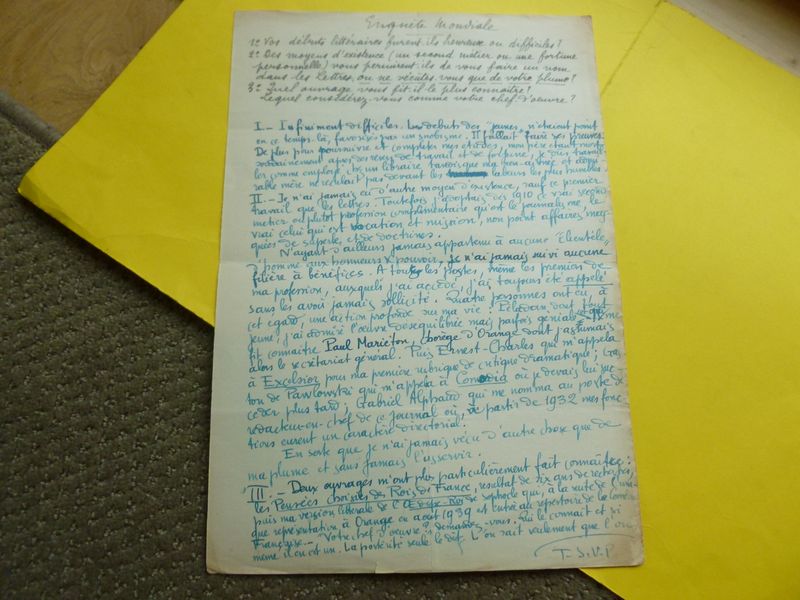 Enquête Mondiale
1º Vos débuts littéraires furent-ils heureux ou difficiles?
2º Des moyens d'existence (un second métier ou une fortune
personnelle) vous permirent-ils de vous faire un nom
dans les lettres, ou ne vécûtes-vous que de votre plume?
3º Quel ouvrage vous fit-il le plus connaître?
Lequel considérez-vous comme votre chef d'oeuvre?
I.- Infiniment difficiles. Les débuts des "jeunes" n'étaient point
en ce temps-là, favorisés par un snobisme. Il fallait faire ses preuves.
De plus pour poursuivre et compléter mes études, mon père étant mort
soudainement après des revers de travail et de fortune, je dus travail-
ler comme employé chez un libraire, tandis que ma bien-aimée et
rable mère ne reculait pas devant les labeurs les plus humbles.
II.- Je n'ai jamais eu d'autre moyen d'existence, sauf ce premier
travail que les lettres. Toutefois j'acceptais dès 1910 ce vrai second
métier ou plutôt profession complémentaire qu'est le journalisme, le
vrai celui qui est vocation et mission, non point affaires
et de doctrines.
N'ayant d'ailleurs jamais appartenu à aucune "clientèle"
d'homme aux honneurs & pouvoir, je n'ai jamais suivi aucune
filière à bénéfices. A tous les postes, même les premiers de
ma profession, auxquels j'ai accédé, j'ai toujours été appelé
sans les avoir jamais sollicité. Quatre personnes ont eu, à
cet égard, une action profonde sur ma vie: Péladan dont tout
jeune, j'ai admiré l'oeuvre déséquilibrée mais parfois géniale et qui me
fit connaître Paul Mariéton, chorège d'Orange dont j'assumais
alors le secrétariat général. Puis Ernest-Charles qui m'appela
à Excelsior pour ma première rubrique de critique dramatique; Gas-
ton de Pawlowski qui m'appela à Comœdia où je devais lui suc-
céder plus tard; Gabriel Alphaud qui me nomma au poste de
rédacteur en chef de ce journal où, à partir de 1932 mes fonc-
tions eurent un caractère directorial.
En sorte que je n'ai jamais vécu d'autre chose que de
ma plume et sans jamais l'asservir.
III.- Deux ouvrages m'ont plus particulièrement fait connaître:
les Pensées choisies des Rois de France, résultat de six ans de recherches,
puis ma version littérale de l'Œdipe Roi de Sophocle qui, à la suite de
que représentation à Orange en août 1939 est entré au répertoire de la Comédie
Française.- Votre chef d'oeuvre? demandez-vous. Qui le connaît et si
même il en est un. La postérité seule le dit. L'on sait seulement que l'on
T.S.V.P.